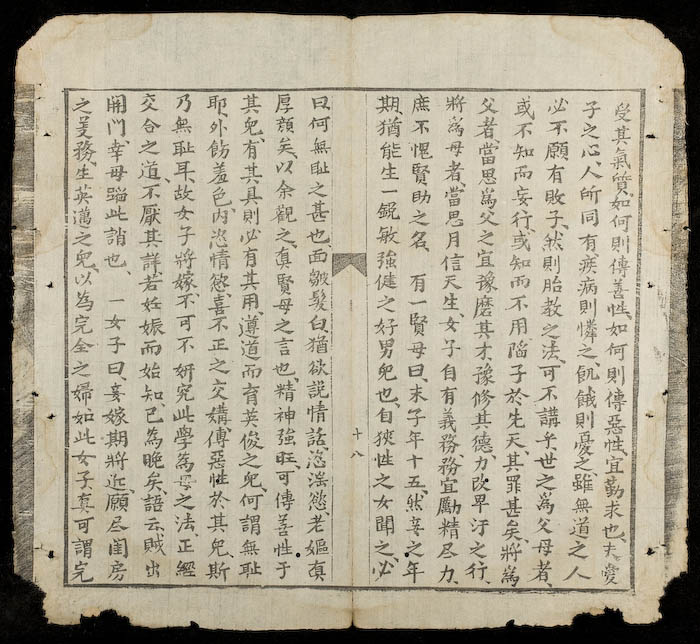 受其氣質、如何則傳善性、如何則傳惡性、宜勤求也、夫愛
子之心、人所同、有疾病則憐之、飢餓則憂之、雖無道之人
必不願有敗子、然則胎教之法、可不講乎、世之為父母者、
或不知而妄行、或知而不用、陷子於先天、其罪甚矣、將為
父者、當思為父之宜、豫磨其才、豫修其德、力改卑汙之行、
將為母者、當思月信天生女子自有義務、務宜勵精尽力、
庶不愧賢助之名、有一賢母曰、末子年十五、然妾之年
期、猶能生一銳敏強健之好男兒也、自狹性之女聞之、必
十八
曰何無恥之甚也、面皺髮白、猶欲説情話、恣淫慾、老嫗真
厚顏矣、以余觀之、真賢母之言也、精神強旺、可傳善性于
其兒、有其具則必有其用、遵道而育英俊之兒、何謂無恥
耶、外飭羞色、内恣情慾、喜不正之交媾、傳惡性於其兒、斯
乃無恥耳、故女子將嫁、不可不姸究此學、為母之法、正經
交合之道、不厭其詳、若妊娠而始知、已為晚矣、語云、賊出
開門、幸毋蹈此誚也、一女子曰、妾嫁期將近、願尽閨房
之義務、生英邁之兒、以為完全之婦、如此女子、真可謂完